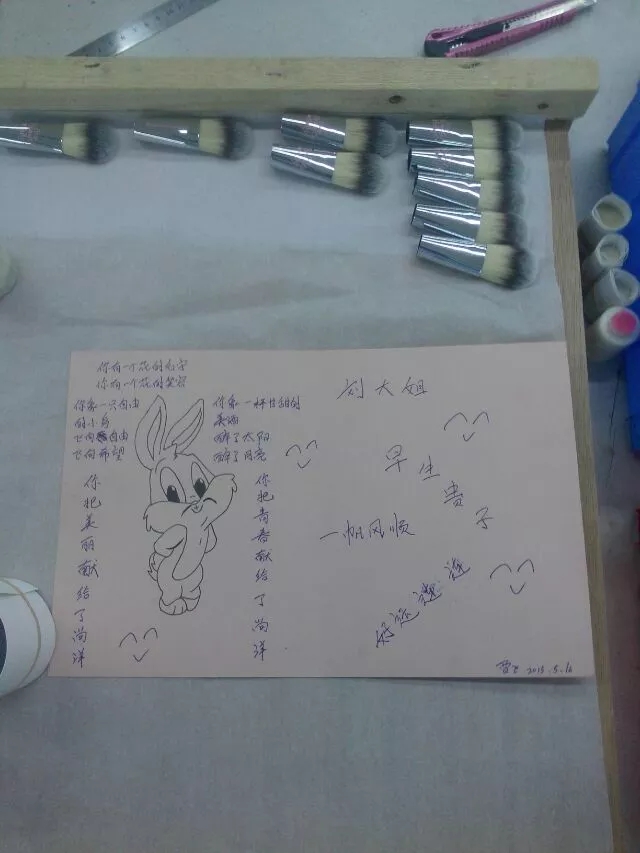 你有一个花的名字
你有一个花的笑容
你像一只自由
的小鸟
飞向自由
飞向希望
你把美丽献给了尚洋
你像一杯甘甜的
美酒
醉了太阳
醉了月亮
你把青春献给了尚洋
刘大姐
早生贵子
一帆风顺
好运
2013.5.16